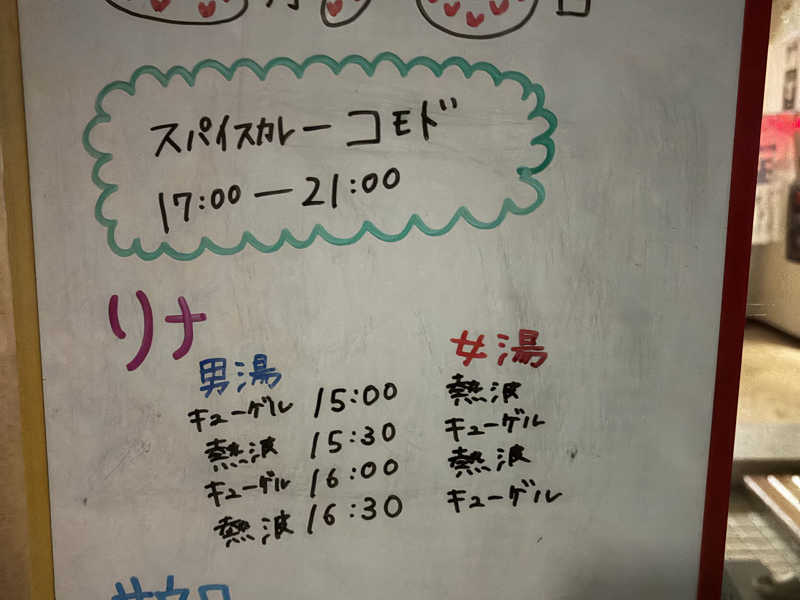 スパイスカレー コモド
17:00 ー 21:00
リナ
男湯 女湯
キューゲル 15:00 熱波
熱波 15:30 キューゲル
キューゲル 16:00 熱波
熱波 16:30 キューゲル